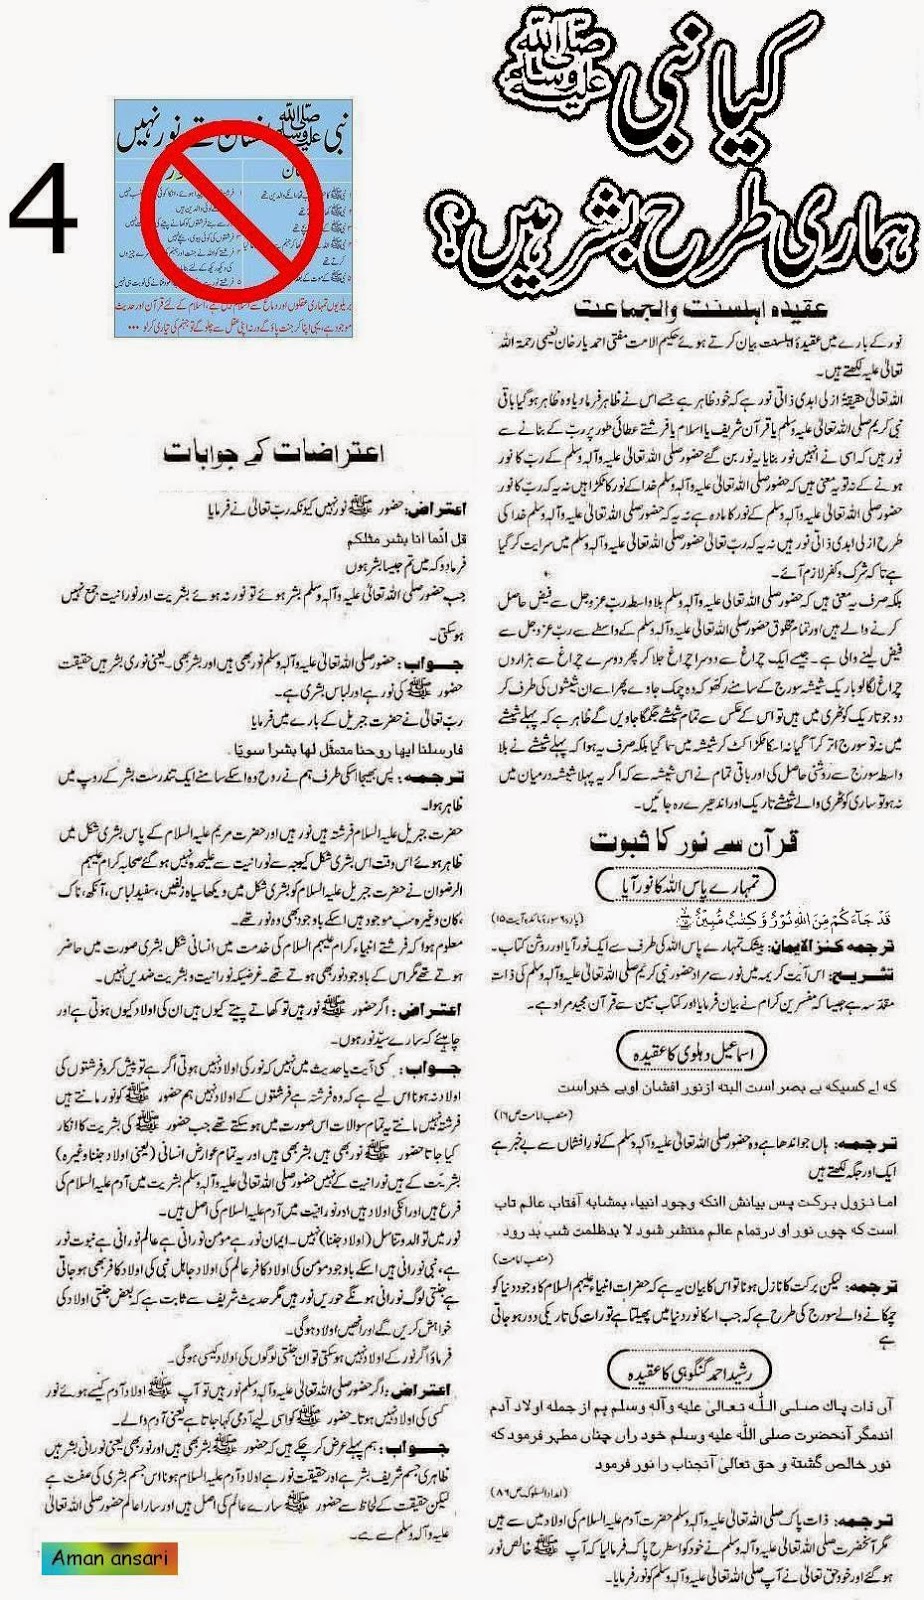 کیا نبی ﷺ
ہماری طرح بشر ہیں؟
عقیدہ اہلسنت والجماعت
نور کے بارے میں عقیدۂ اہلسنت بیان کرتے ہوئے حکیم الامت مفتی احمد یار خان نعیمی رحمۃ اللہ
تعالیٰ علیہ لکھتے ہیں۔
اللہ تعالیٰ حقیقۃً ازلی ابدی ذاتی نور ہے کہ خود ظاہر ہے جسے اس نے ظاہر فرما دیا وہ ظاہر ہو گیا باقی
نبی کریم صلی اللہ تعالیٰ علیہ وسلم یا قرآن شریف یا اسلام یا فرشتے عطائی طور پر ربّ کے بنانے سے
نور ہیں کہ اسی نے انہیں نور بنایا یہ نور بن گئے حضور صلی اللہ تعالیٰ علیہ وآلہ وسلم کے ربّ کا نور
ہونے کے نہ تو یہ معنی ہیں کہ حضور صلی اللہ تعالیٰ علیہ وآلہ وسلم خدا کے نور کا ٹکڑا ہیں نہ یہ کہ ربّ کا نور
حضور صلی اللہ تعالیٰ علیہ وآلہ وسلم کے نور کا مادہ ہے نہ یہ کہ حضور صلی اللہ تعالیٰ علیہ وآلہ وسلم خدا کی
طرح ازلی ابدی ذاتی نور ہیں نہ یہ کہ ربّ تعالیٰ حضور صلی اللہ تعالیٰ علیہ وآلہ وسلم میں سرایت کر گیا
ہے تا کہ شرک و کفر لازم آئے۔
بلکہ صرف یہ معنی ہیں کہ حضور صلی اللہ تعالیٰ علیہ وآلہ وسلم بلا واسطہ ربّ عزوجل سے فیض حاصل
کرنے والے ہیں اور تمام مخلوق حضور صلی اللہ تعالیٰ علیہ وآلہ وسلم کے واسطے سے ربّ عزوجل سے
فیض لینے والی ہے۔ جیسے ایک چراغ سے دوسرا چراغ جلا کر پھر دوسرے چراغ سے ہزاروں
چراغ لگا لو یا ایک شیشہ سورج کے سامنے رکھو کہ وہ چمک جاوے پھر اسے ان شیشوں کی طرف کر
دو جو تاریک کوٹھری میں ہیں تو اس کے عکس سے تمام شیشے جگمگا جاویں گے ظاہر ہے کہ پہلے شیشے
میں نہ تو سورج اتر کر آ گیا نہ اسکا ٹکڑا کٹ کر شیشہ میں سما گیا بلکہ صرف یہ ہوا کہ پہلے شیشے نے بلا
واسطہ سورج سے روشنی حاصل کی اور باقی تمام نے اس شیشہ سے کہ اگر یہ پہلا شیشہ درمیان میں
نہ ہو تو ساری کوٹھری والے شیشے تاریک اور اندھیرے رہ جائیں۔
قرآن سے نور کا ثبوت
تمہارے پاس اللہ کا نور آیا
قَدْ جَآءَكُمْ مِّنَ اللّٰهِ نُوْرٌ وَّكِتٰبٌ مُّبِيْنٌ (پارہ ۶ سورۃ مائدہ آیت ۱۵)
ترجمہ کنز الایمان: بیشک تمہارے پاس اللہ کی طرف سے ایک نور آیا اور روشن کتاب۔
تشریح: اس آیت کریمہ میں نور سے مراد حضور نبی کریم صلی اللہ تعالیٰ علیہ وآلہ وسلم کی ذات
مقدسہ ہے جیسا کہ مفسرین کرام نے بیان فرمایا اور کتاب مبین سے قرآن مجید مراد ہے۔
اسماعیل دہلوی کا عقیدہ
کہ اے کسیکہ بے بصر است البتہ ازنور افشان اوبے خبر است
(منصب امامت ص ۱۶)
ترجمہ: ہاں جو اندھا ہے وہ حضور صلی اللہ تعالیٰ علیہ وآلہ وسلم کے نور افشاں سے بے خبر ہے
ایک اور جگہ لکھتے ہیں
اما نزول برکت پس بیانش آنکہ وجود انبیاء بمشابہ آفتاب عالم تاب
است کہ چوں نور او درتمام عالم منتشر شود لا بدظلمت شب بد رود۔
(منصب امامت)
ترجمہ: لیکن برکت کا نازل ہونا تو اس کا بیان یہ ہے کہ حضرات انبیاء علیہم السلام کا وجود دنیا کو
چمکانے والے سورج کی طرح ہے کہ جب اسکا نور دنیا میں پھیلتا ہے تو رات کی تاریکی دور ہو جاتی
ہے
رشید احمد گنگوہی کا عقیدہ
آں ذات پاک صلی اللہ تعالیٰ علیہ وآلہ وسلم ہم از جملہ اولاد آدم
اندمگر آنحضرت صلی اللہ علیہ وسلم خود راں چناں مطہر فرمود کہ
نور خالص گشتۃ و حق تعالیٰ آنجناب را نور فرمود
(امداد السلوک ص ۸۶)
ترجمہ: ذات پاک صلی اللہ تعالیٰ علیہ وآلہ وسلم حضرت آدم علیہ السلام کی اولاد میں سے ہیں
مگر آنحضرت صلی اللہ علیہ وسلم نے خود کو اسطرح پاک فرمالیا کہ آپ ﷺ خالص نور
ہو گئے اور خود حق تعالیٰ نے آپ صلی اللہ تعالیٰ علیہ وآلہ وسلم کو نور فرمایا۔
4
نبی ﷺ انسان تھے نور نہیں
بریلویوں تمہاری عقلوں اور دماغ سے اسلام نہیں ہے، اسلام کے لئے قرآن اور حدیث
موجود ہے، یہی اپنا کر جنت پاؤ گے ورنہ اپنی عقل سے چلو گے تو جہنم کی تیاری کر لو ...
اعتراضات کے جوابات
اعتراض: حضور ﷺ نور نہیں کیونکہ ربّ تعالیٰ نے فرمایا
قل انّما انا بشر مثلکم
فرما دو کہ میں تم جیسا بشر ہوں
جب حضور صلی اللہ تعالیٰ علیہ وآلہ وسلم بشر ہوئے تو نور نہ ہوئے بشریت اور نورانیت جمع نہیں
ہو سکتی۔
جواب: حضور صلی اللہ تعالیٰ علیہ وآلہ وسلم نور بھی ہیں اور بشر بھی۔ یعنی نوری بشر ہیں حقیقت
حضور ﷺ کی نور ہے اور لباس بشری ہے۔
ربّ تعالیٰ نے حضرت جبریل کے بارے میں فرمایا
فارسلنا ایھا روحنا متمثّل لھا بشرا سویّا۔
ترجمہ: پس بھیجا اسکی طرف ہم نے روح وہ اسکے سامنے ایک تندرست بشر کے روپ میں
ظاہر ہوا۔
حضرت جبریل علیہ السلام فرشتہ ہیں نور ہیں اور حضرت مریم علیہ السلام کے پاس بشری شکل میں
ظاہر ہوئے اس وقت اس بشری شکل کیوجہ سے نورانیت سے علیحدہ نہیں ہو گئے صحابہ کرام علیہم
الرضوان نے حضرت جبریل علیہ السلام کو بشری شکل میں دیکھا سیاہ زلفیں، سفید لباس، آنکھ، ناک
،کان وغیرہ سب موجود ہیں اسکے باوجود بھی وہ نور تھے۔
معلوم ہوا کہ فرشتے انبیاء کرام علیہم السلام کی خدمت میں انسانی شکل بشری صورت میں حاضر
ہوتے تھے مگر اس کے باوجود نور بھی ہوتے تھے۔ غرضیکہ نورانیت و بشریت ضدیں نہیں۔
اعتراض: اگر حضور ﷺ نور ہیں تو کھاتے پیتے کیوں ہیں ان کی اولاد کیوں ہوئی ہے اور
چاہئے کہ سارے سیّد نور ہوں۔
جواب: کسی آیت یا حدیث میں نہیں کہ نور کی اولاد نہیں ہوتی اگر ہے تو پیش کرو فرشتوں کی
اولاد نہ ہونا اس لیے ہے کہ وہ فرشتہ ہے فرشتوں کے اولاد نہیں ہم حضور ﷺ کو نور مانتے ہیں
فرشتہ نہیں مانتے یہ تمام سوالات اس صورت میں ہو سکتے تھے جب حضور ﷺ کی بشریت کا انکار
کیا جاتا حضور ﷺ نور بھی ہیں بشر بھی ہیں اور یہ تمام عوارض انسانی (یعنی اولاد جننا وغیرہ)
بشریت کے ہیں نورانیت کے نہیں حضور صلی اللہ تعالیٰ علیہ وآلہ وسلم بشریت میں آدم علیہ السلام کی
فرع ہیں اور انکی اولاد ہیں اور نورانیت میں آدم علیہ السلام کی اصل ہیں۔
نور میں توالد و تناسل (اولاد جننا) نہیں۔ ایمان نور ہے مؤمن نورانی ہے عالم نورانی ہے نبوت نور
ہے، نبی نورانی ہیں اسکے باوجود مؤمن کی اولاد کافر عالم کی اولاد جاہل نبی کی اولاد کافر بھی ہو جاتی
ہے جنتی لوگ نورانی ہونگے حوریں نور ہیں مگر حدیث شریف سے ثابت ہے کہ بعض جنتی اولاد کی
خواہش کریں گے اور انھیں اولاد ہوگی۔
فرماؤ اگر نور کے اولاد نہیں ہو سکتی تو ان جنتی لوگوں کی اولاد کیسی ہوگی۔
اعتراض: اگر حضور صلی اللہ تعالیٰ علیہ وآلہ وسلم نور ہیں تو آپ ﷺ اولاد آدم کیسے ہوئے نور
کسی کی اولاد نہیں ہوتا۔ حضور ﷺ کو اسی لیے آدمی کہا جاتا ہے یعنی آدم والے۔
جواب: ہم پہلے عرض کر چکے ہیں کہ حضور ﷺ بشر بھی ہیں اور نور بھی یعنی نورانی بشر ہیں
ظاہری جسم شریف بشر ہے اور حقیقت نور ہے اولاد آدم علیہ السلام ہونا اس جسم بشری کی صفت ہے
لیکن حقیقت کے لحاظ سے حضور ﷺ سارے عالم کی اصل ہیں اور سارا عالم حضور صلی اللہ تعالیٰ
علیہ وآلہ وسلم سے ہے۔
Aman ansari